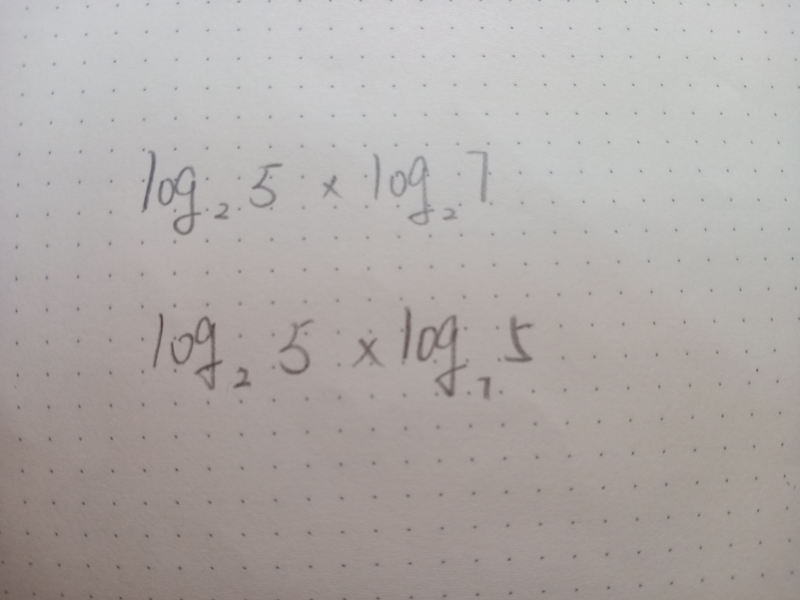 log₂ 5 × log₂ 7
log₂ 5 × log₇ 5